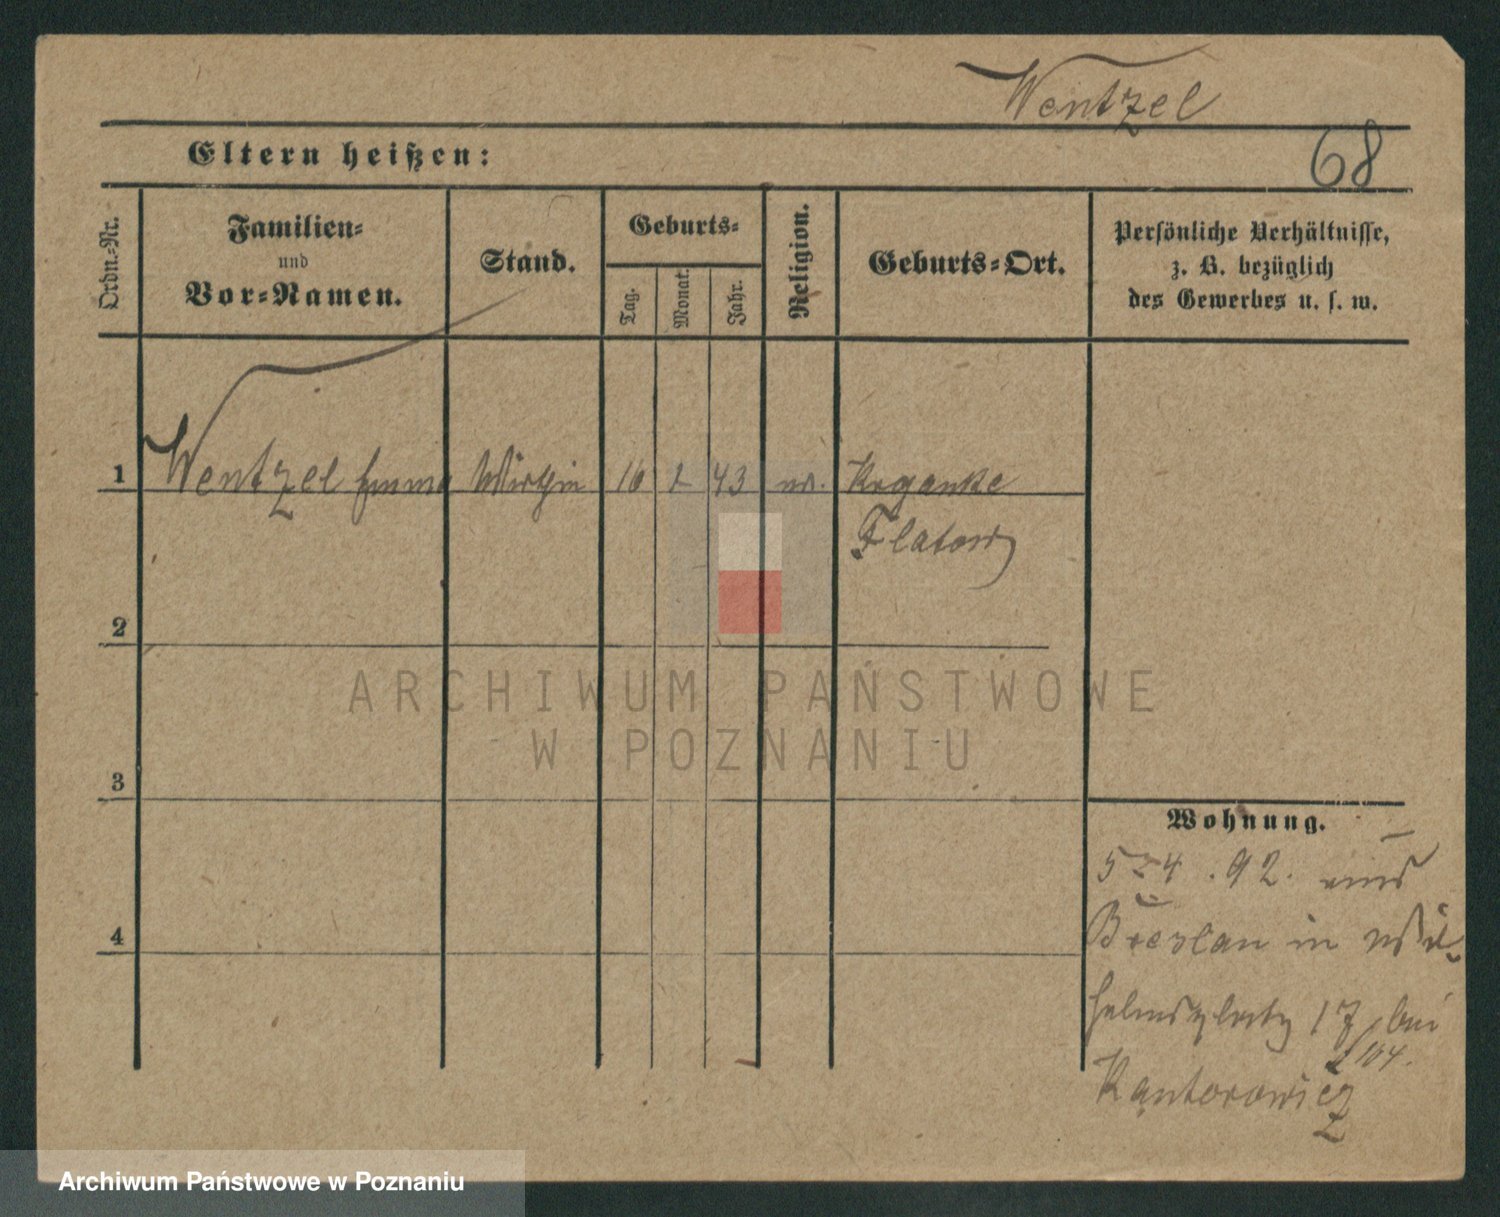 Wentzel
Eltern heißen:
68
Ordn.-Nr.
Familien-
und
Vor-Namen.
Stand.
Geburts-
Tag.
Monat.
Jahr.
Religion.
Geburts-Ort.
Persönliche Verhältnisse,
z. B. bezüglich
des Gewerbes u. s. w.
1
Wentzel Emma
Wirthin
16
2
43
ev.
Kryanke
Flatow
2
3
4
Wohnung.
5 4. 92. aus
Breslau in Wil-
helmsplatz 17 bei
Kantorowicz
ARCHIWUM PAŃSTWOWE
W POZNANIU
Archiwum Państwowe w Poznaniu